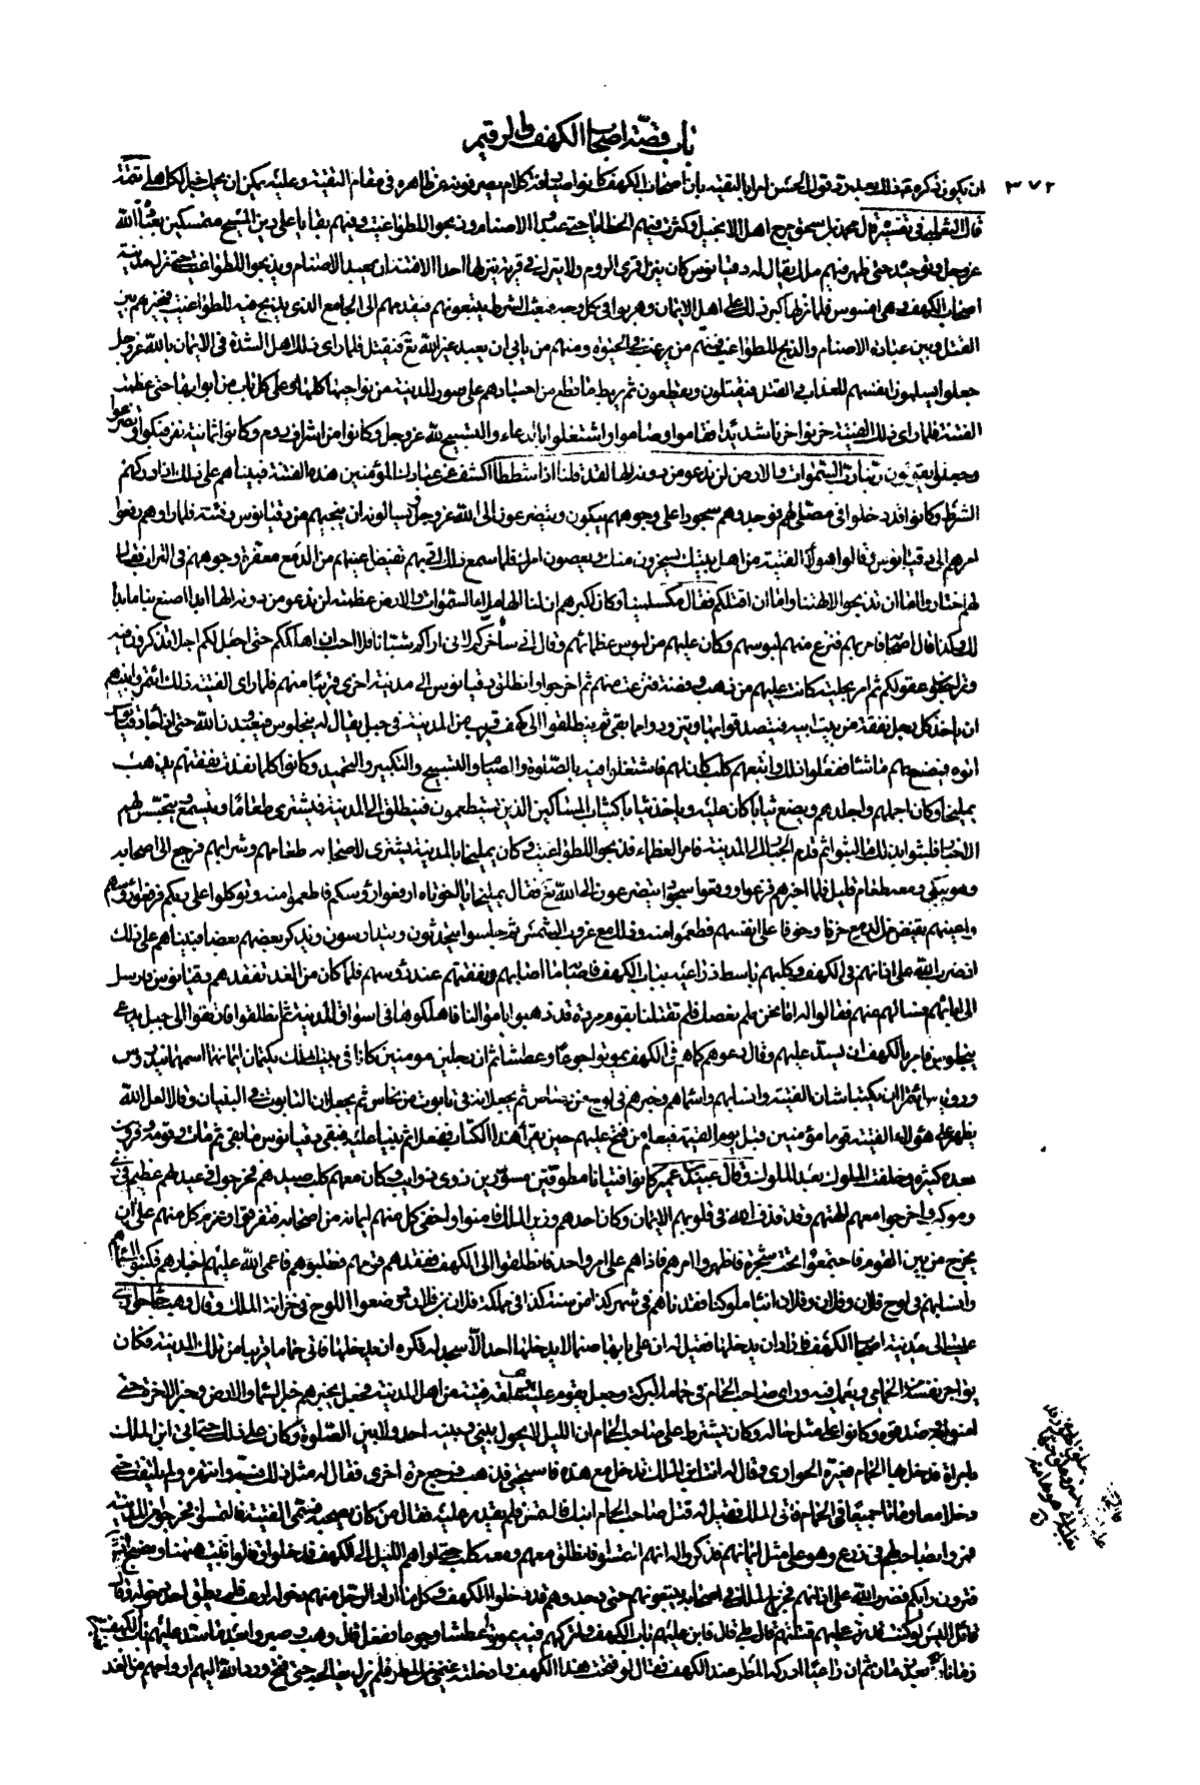 باب قصّة اصحاب الكهف والرقيم
٣٧٢
ان يكون ذكره قوله بعيد ترد قول الحسن امرا بالتقيه بان اصحاب الكهف كانوا صيارفة كلام يصرفونه عن ظاهره فى مقام التقيّة وعليه يمكن ان يحمل خبر الكاهلى تتمّة
قال الثعلبى فى تفسيره قال محمد بن اسحق مرج اهل الانجيل وكثرت فيهم الخطايا حتى عبدوا الاصنام وذبحوا للطواغيت وفيهم بقايا على دين المسيح متمسكين بعبادة الله
عز وجل وتوحيده حتى ظهر فيهم ملك يقال له دقيانوس كان ينزل قرى الروم ولا يترك فى قرية ينزلها احدا الا فتنه ان يعبد الاصنام ويذبح للطواغيت حتى نزل مدينة
اصحاب الكهف وهى افسوس فلما نزلها كبر ذلك على اهل الايمان وهربوا فى كل وجه فبعث الشرط يتبعونهم فيقدمهم الى الجامع الذى يذبح فيه للطواغيت فيخيرهم بين
القتل وبين عبادة الاصنام والذبح للطواغيت فمنهم من يرغب فى الحيوة ومنهم من يابى ان يعبد غير الله تع فيقتل فلما راى ذلك اهل الشدة فى الايمان بالله عز وجل
جعلوا يسلمون انفسهم للعذاب والقتل فيقتلون ويقطعون ثم يربط ما قطع من اجسادهم على صور المدينة من نواحيها كلها وعلى كل باب من ابوابها حتى عظمت
الفتنة فلما راى ذلك الفتية حزنوا حزنا شديدا فقاموا وصاموا واشتغلوا بالدعاء والتسبيح لله عز وجل وكانوا من اشراف روم وكانوا ثمانية نفر فبكوا وتضرعوا
وجعلوا يقولون ربنا رب السموات والارض لن ندعو من دونه الها لقد قلنا اذا شططا اكشف عن عبادك المؤمنين هذه الفتنة فبيناهم على ذلك اذ ادركهم
الشرط وكانوا قد دخلوا فى مصلى لهم فوجدوهم سجودا على وجوههم يبكون ويتضرعون الى الله عز وجل ويسالونه ان ينجيهم من دقيانوس وفتنته فلما راوهم رفعوا
امرهم الى دقيانوس وقالوا هؤلاء الفتية من اهل بيتك يسخرون منك ويعصون امرك فلما سمع ذلك اتى بهم تفيض اعينهم من الدمع معفرة وجوههم فى التراب فقال
لهم اختاروا اما ان تذبحوا لالهتنا واما ان اقتلكم فقال مكسلمينا وكان اكبرهم ان لنا الها ملأ السموات والارض عظمته لن ندعو من دونه الها ابدا اصنع بنا ما بدا
لك وكذا قال اصحابه فامر بهم فنزع منهم لبوسهم وكان عليهم من لبوس عظمائهم وقال انى ساخركم لانى اراكم شبانا فلا احب ان اهلككم حتى اجعل لكم اجلا تذكرون فيه
وتراجعون عقولكم ثم امر بحلية كانت عليهم من ذهب وفضة فنزعت عنهم ثم اخرجوا وانطلق دقيانوس الى مدينة اخرى قريبا منهم فلما راى الفتية ذلك ائتمروا بينهم
ان ياخذ كل رجل نفقة من بيت ابيه فيتصدقوا بها ويتزودوا بما بقى ثم ينطلقوا الى كهف قريب من المدينة فى جبل يقال له ينجلوس فيعبدون الله حتى اذا جاء دقيانوس
اتوه فيصنع بهم ما شاء ففعلوا ذلك واتبعهم كلب كان لهم فاشتغلوا فيه بالصلوة والصيام والتسبيح والتكبير والتحميد وكانوا كلما نفدت نفقتهم يذهب
يمليخا وكان اجملهم واجلدهم ويضع ثيابا كان عليه وياخذ ثيابا كثياب المساكين الذين يستطعمون فينطلق الى المدينة فيشترى طعاما ويتسمع ويتجسس لهم
الاخبار فلبثوا بذلك ما لبثوا ثم قدم الجبار الى المدينة فامر العظماء فذبحوا للطواغيت وكان يمليخا بالمدينة يشترى لاصحابه طعامهم وشرابهم فرجع الى اصحابه
وهو يبكى ومعه طعام قليل فلما اخبرهم فزعوا ووقعوا سجودا يتضرعون الى الله تع فقال يمليخا يا اخوتاه ارفعوا رؤسكم فاطعموا منه وتوكلوا على ربكم فرفعوا رؤسهم
واعينهم تفيض من الدمع حزنا وخوفا على انفسهم فطعموا منه وذلك مع غروب الشمس ثم جلسوا يتحدثون ويتدارسون ويذكر بعضهم بعضا فبيناهم على ذلك
اذ ضرب الله على اذانهم فى الكهف وكلبهم باسط ذراعيه بباب الكهف فاصابه ما اصابهم ونفقتهم عند رؤسهم فلما كان من الغد تفقدهم دقيانوس فارسل
الى ابائهم فسالهم عنهم فقالوا له اما نحن فلم نعصك فلم تقتلنا بقوم مردة قد ذهبوا باموالنا فاهلكوها فى اسواق المدينة ثم انطلقوا فارتفعوا الى جبل يدعى
ينجلوس فامر بالكهف ان يسد عليهم وقال دعوهم كما هم فى الكهف يموتوا جوعا وعطشا ثم ان رجلين مومنين كانا فى بيت الملك يكتمان ايمانهما اسمهما بيدروس
وروناس ائتمرا ان يكتبا شان الفتية وانسابهم واسمائهم وخبرهم فى لوح من رصاص ثم يجعلانه فى تابوت من نحاس ثم يجعلان التابوت فى البنيان وقالا لعل الله
يظهر على هؤلاء الفتية قوما مؤمنين قبل يوم القيمة فيعلم من فتح عليهم حين يقرأ هذا الكتاب ففعلا ثم بنيا عليه فبقى دقيانوس ما بقى ثم مات وقومه وقرون
بعده كثيرة وخلفت الملوك بعد الملوك وقال عبيد بن عمير كانوا فتيانا مطوقين مسورين ذوى ذوايب وكان معهم كلب صيدهم فخرجوا فى عيد لهم عظيم فى زى
وموكب واخرجوا معهم الهتهم وقد قذف الله فى قلوبهم الايمان وكان احدهم وزير الملك فامنوا واخفى كل منهم ايمانه من اصحابه فتفرقوا وعزم كل منهم على ان
يخرج من بين القوم فاجتمعوا تحت شجرة فاظهروا امرهم فاذا هم على امر واحد فانطلقوا الى الكهف ففقدهم قومهم فطلبوهم فاعمى الله عليهم اخبارهم فكتبوا اسماءهم
وانسابهم فى لوح فلان وفلان وفلان ابناء ملوكنا فقدناهم فى شهر كذا من سنة كذا فى مملكة فلان بن فلان ووضعوا اللوح فى خزانة الملك وقال وهب جاء حوارى
عيسى الى مدينة اصحاب الكهف فاراد ان يدخلها فقيل له ان على بابها صنما لا يدخلها احد الا سجد له فكره ان يدخلها فاتى حماما قريبا من تلك المدينة فكان
يواجر نفسه من الحمامى ويعمل فيه وراى صاحب الحمام فى حمامه البركة وجعل يقوم عليه وعلقه فتية من اهل المدينة فجعل يخبرهم خبر السماء والارض وخبر الاخرة حتى
امنوا به وصدقوه وكانوا على مثل حاله وكان يشترط على صاحب الحمام ان الليل لا يحول بينى وبينه احد ولا بين الصلوة وكان على ذلك حتى اتى ابن الملك
بامراة فدخل بها الحمام فعيره الحوارى وقال له انت ابن الملك تدخل مع هذه فاستحيى فذهب فرجع مرة اخرى فقال له مثل ذلك فسبه وانتهره ولم يلتفت حتى
دخلا معا وماتا جميعا فى الحمام فاتى الملك فقيل له قتل صاحب الحمام ابنك فالتمس فلم يقدر عليه فقال من كان يصحبه فسمى الفتية فالتمسوا فخرجوا من المدينة
فمروا بصاحب لهم فى زرع وهو على مثل ايمانهم فذكروا له انهم التمسوا فانطلق معهم ومعه كلب حتى اواهم الليل الى الكهف فدخلوا وقالوا نبيت ههنا ونصبح
فترون رايكم فضرب الله على اذانهم فخرج الملك فى اصحابه يتبعونهم حتى وجدوهم قد دخلوا الكهف وكلما اراد الرجل منهم دخوله ارعب فلم يطق احد دخوله وقال
قائل اليس لو كنت قدرت عليهم قتلتهم قال بلى قال فابن عليهم باب الكهف واتركهم فيه يموتوا عطشا وجوعا ففعل قال وهب وصبروا بعد ما سد عليهم باب الكهف
زمانا بعد زمان ثم ان راعيا ادركه المطر عند الكهف فقال لو فتحت هذا الكهف وادخلته غنمى من المطر فلم يزل يعالجه حتى فتح ورد الله اليهم ارواحهم من الغد